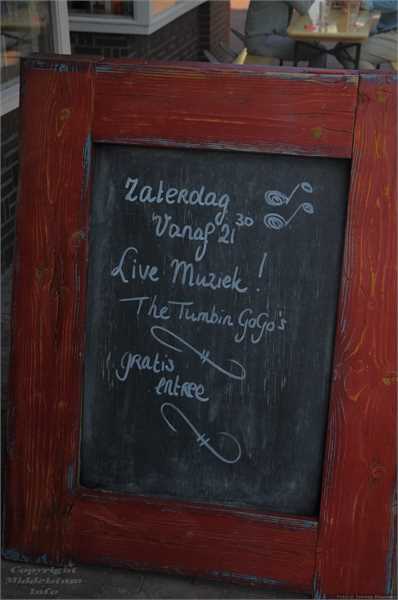 Zaterdag
Vanaf 21 30
Live Muziek!
The Tumbin GoGo's
gratis
entree
Copyright
Middelstum
Info